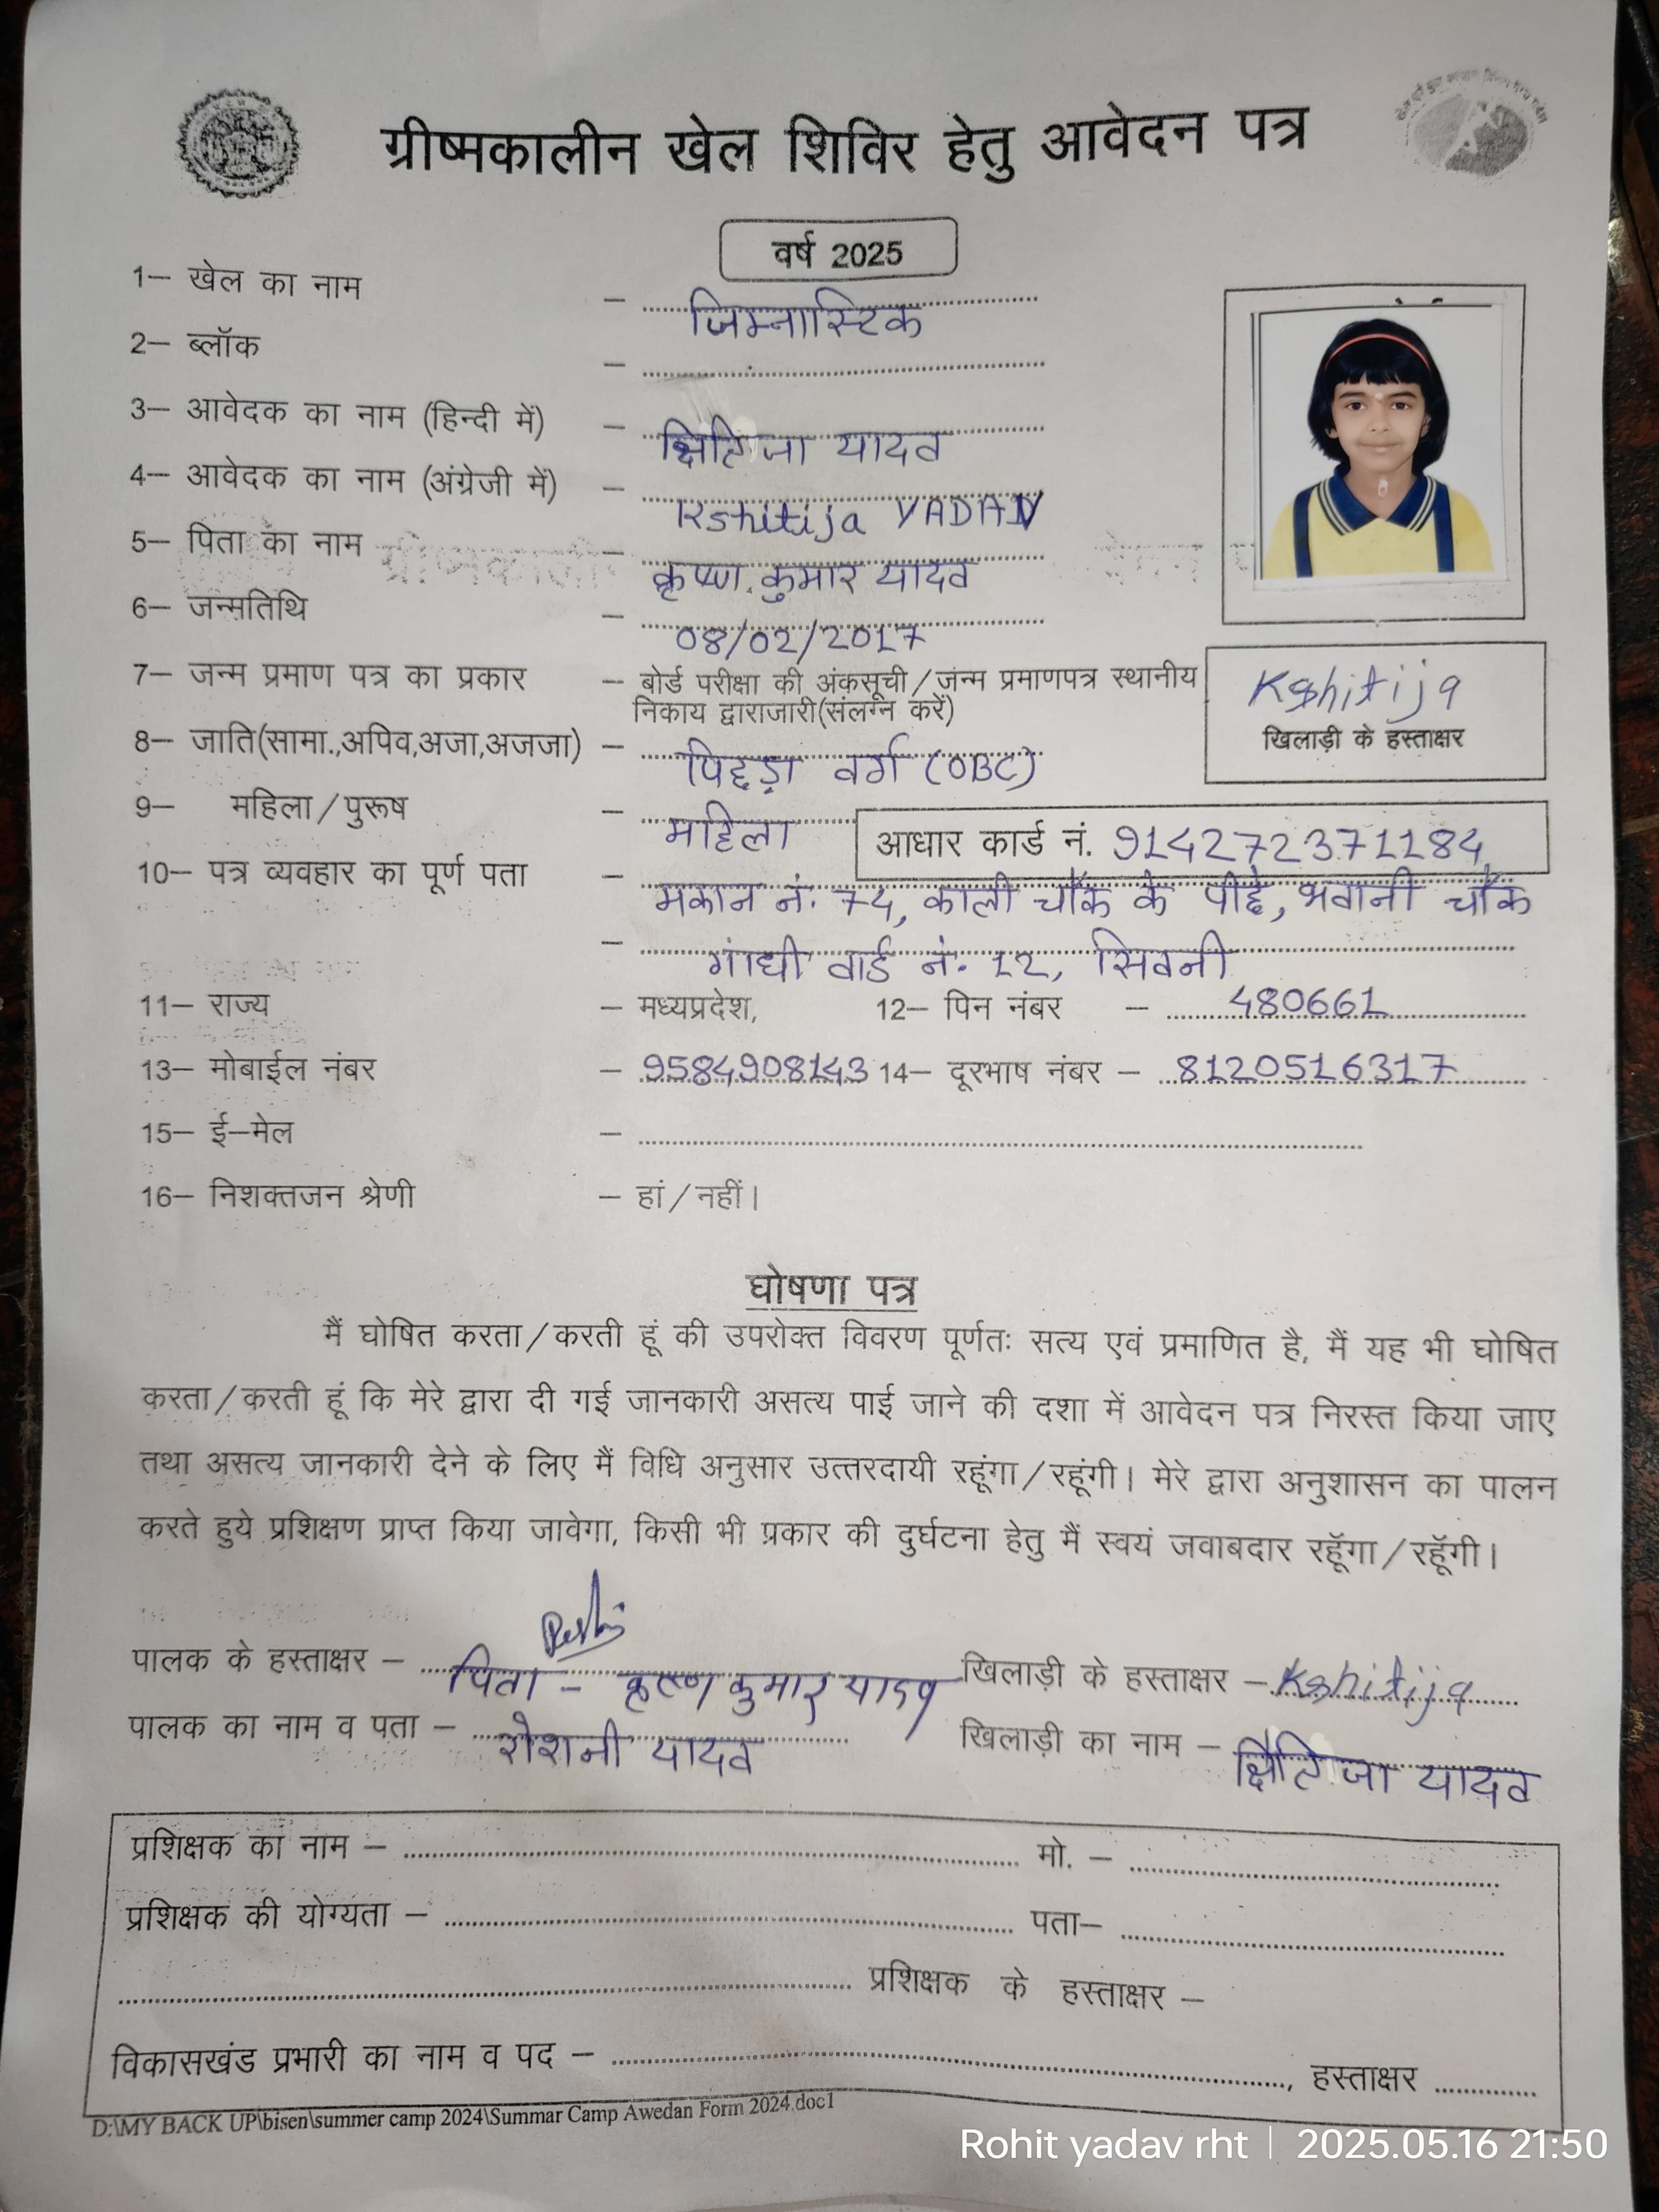 ग्रीष्मकालीन खेल शिविर हेतु आवेदन पत्र
वर्ष 2025
1– खेल का नाम – जिम्नास्टिक
2– ब्लॉक –
3– आवेदक का नाम (हिन्दी में) – क्षितिजा यादव
4– आवेदक का नाम (अंग्रेजी में) – Kshitija YADAV
5– पिता का नाम – कृष्ण कुमार यादव
6– जन्मतिथि – 08/02/2017
7– जन्म प्रमाण पत्र का प्रकार – बोर्ड परीक्षा की अंकसूची/जन्म प्रमाणपत्र स्थानीय
निकाय द्वाराजारी(संलग्न करें)
Kshitija
खिलाड़ी के हस्ताक्षर
8– जाति(सामा.,अपिव,अजा,अजजा) – पिछड़ा वर्ग (OBC)
9– महिला/पुरूष – महिला
आधार कार्ड नं. 914272371184
10– पत्र व्यवहार का पूर्ण पता – मकान नं. 74, काली चौक के पीछे, भवानी चौक
– गांधी वार्ड नं. 12, सिवनी
11– राज्य – मध्यप्रदेश, 12– पिन नंबर – 480661
13– मोबाईल नंबर – 9584908143 14– दूरभाष नंबर – 8120516317
15– ई–मेल –
16– निशक्तजन श्रेणी – हां/नहीं।
घोषणा पत्र
मैं घोषित करता/करती हूं की उपरोक्त विवरण पूर्णतः सत्य एवं प्रमाणित है, मैं यह भी घोषित
करता/करती हूं कि मेरे द्वारा दी गई जानकारी असत्य पाई जाने की दशा में आवेदन पत्र निरस्त किया जाए
तथा असत्य जानकारी देने के लिए मैं विधि अनुसार उत्तरदायी रहूंगा/रहूंगी। मेरे द्वारा अनुशासन का पालन
करते हुये प्रशिक्षण प्राप्त किया जावेगा, किसी भी प्रकार की दुर्घटना हेतु मैं स्वयं जवाबदार रहूॅगा/रहूॅगी।
पालक के हस्ताक्षर – पिता – कृष्ण कुमार यादव खिलाड़ी के हस्ताक्षर – Kshitija
पालक का नाम व पता – रोशनी यादव खिलाड़ी का नाम – क्षितिजा यादव
प्रशिक्षक का नाम – मो. –
प्रशिक्षक की योग्यता – पता–
प्रशिक्षक के हस्ताक्षर –
विकासखंड प्रभारी का नाम व पद – , हस्ताक्षर
D:\MY BACK UP\bisen\summer camp 2024\Summar Camp Awedan Form 2024.doc1
Rohit yadav rht | 2025.05.16 21:50